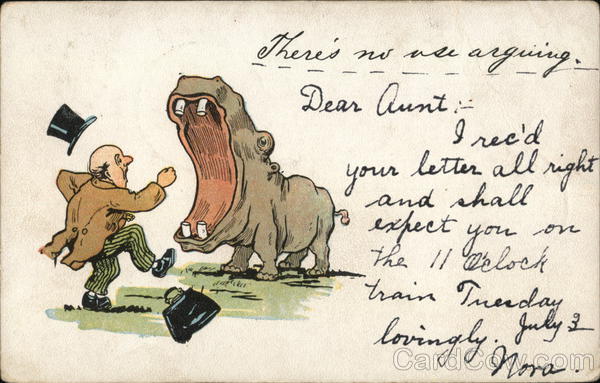 There's no use arguing.
Dear Aunt:-
I rec'd
your letter all right
and shall
expect you on
the 11 O'clock
train Tuesday
lovingly. July 3
Nora.
CardCow.com